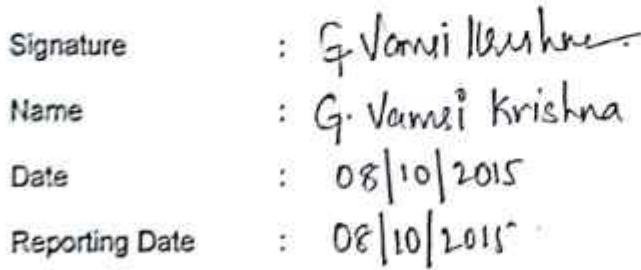 Signature : G Vamsi Krishna.
Name : G. Vamsi Krishna
Date : 08|10|2015
Reporting Date : 08|10|2015